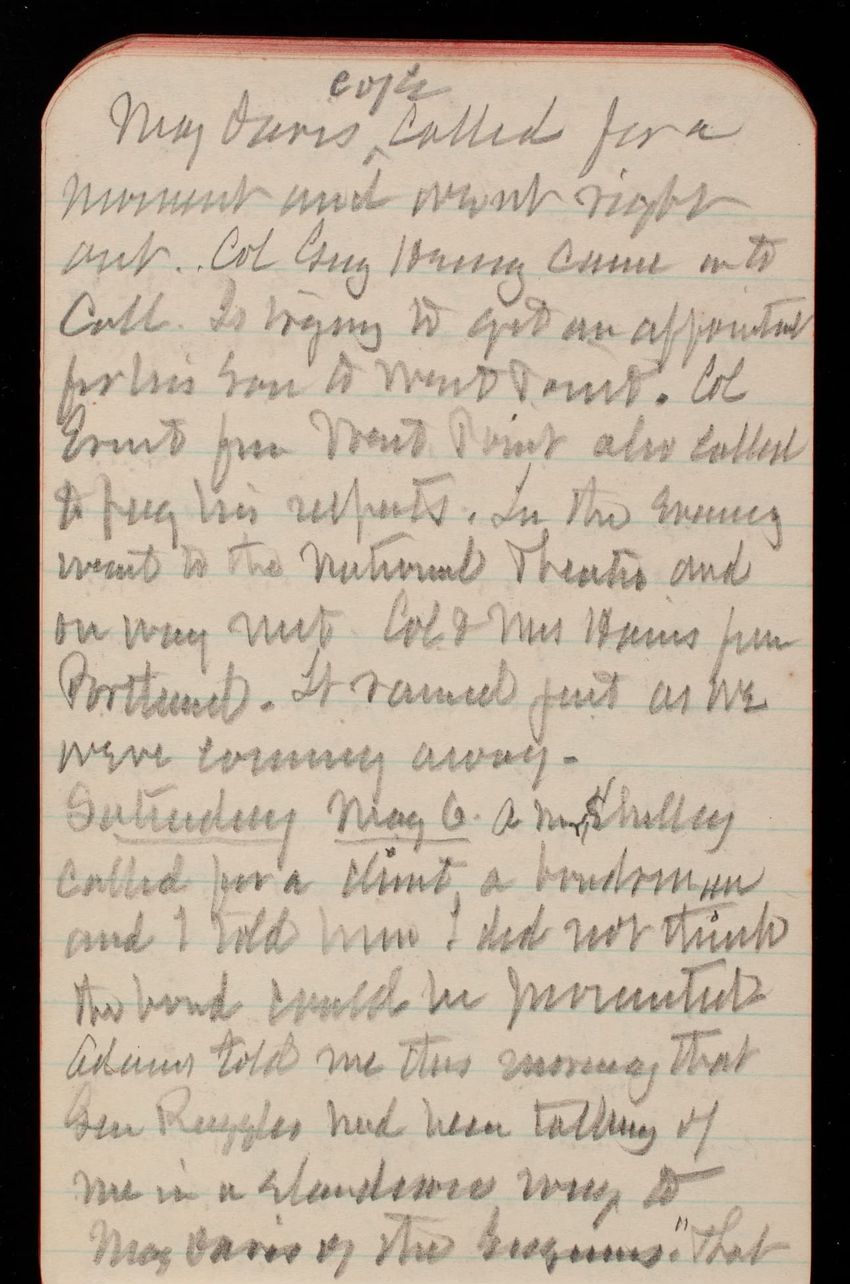 eng'rs
Maj Davis ^ called for a
moment and went right
out. Col Guy Henry came in to
Call. Is trying to get an appointment
for his son to West Point. Col
Ernst from West Point also called
to pay his respects. In the evening
went to the National Theatre and
on way met Col & Mrs Hains from
Portland. It rained just as we
were coming away.
Saturday May 6. A Mr. Shelley
called for a client, a bondsman
and I told him I did not think
the bond could be
Adams told me this morning that
Gen Ruggles had been talking of
me in a slanderous way to
Maj Davis of the Engineers. "That